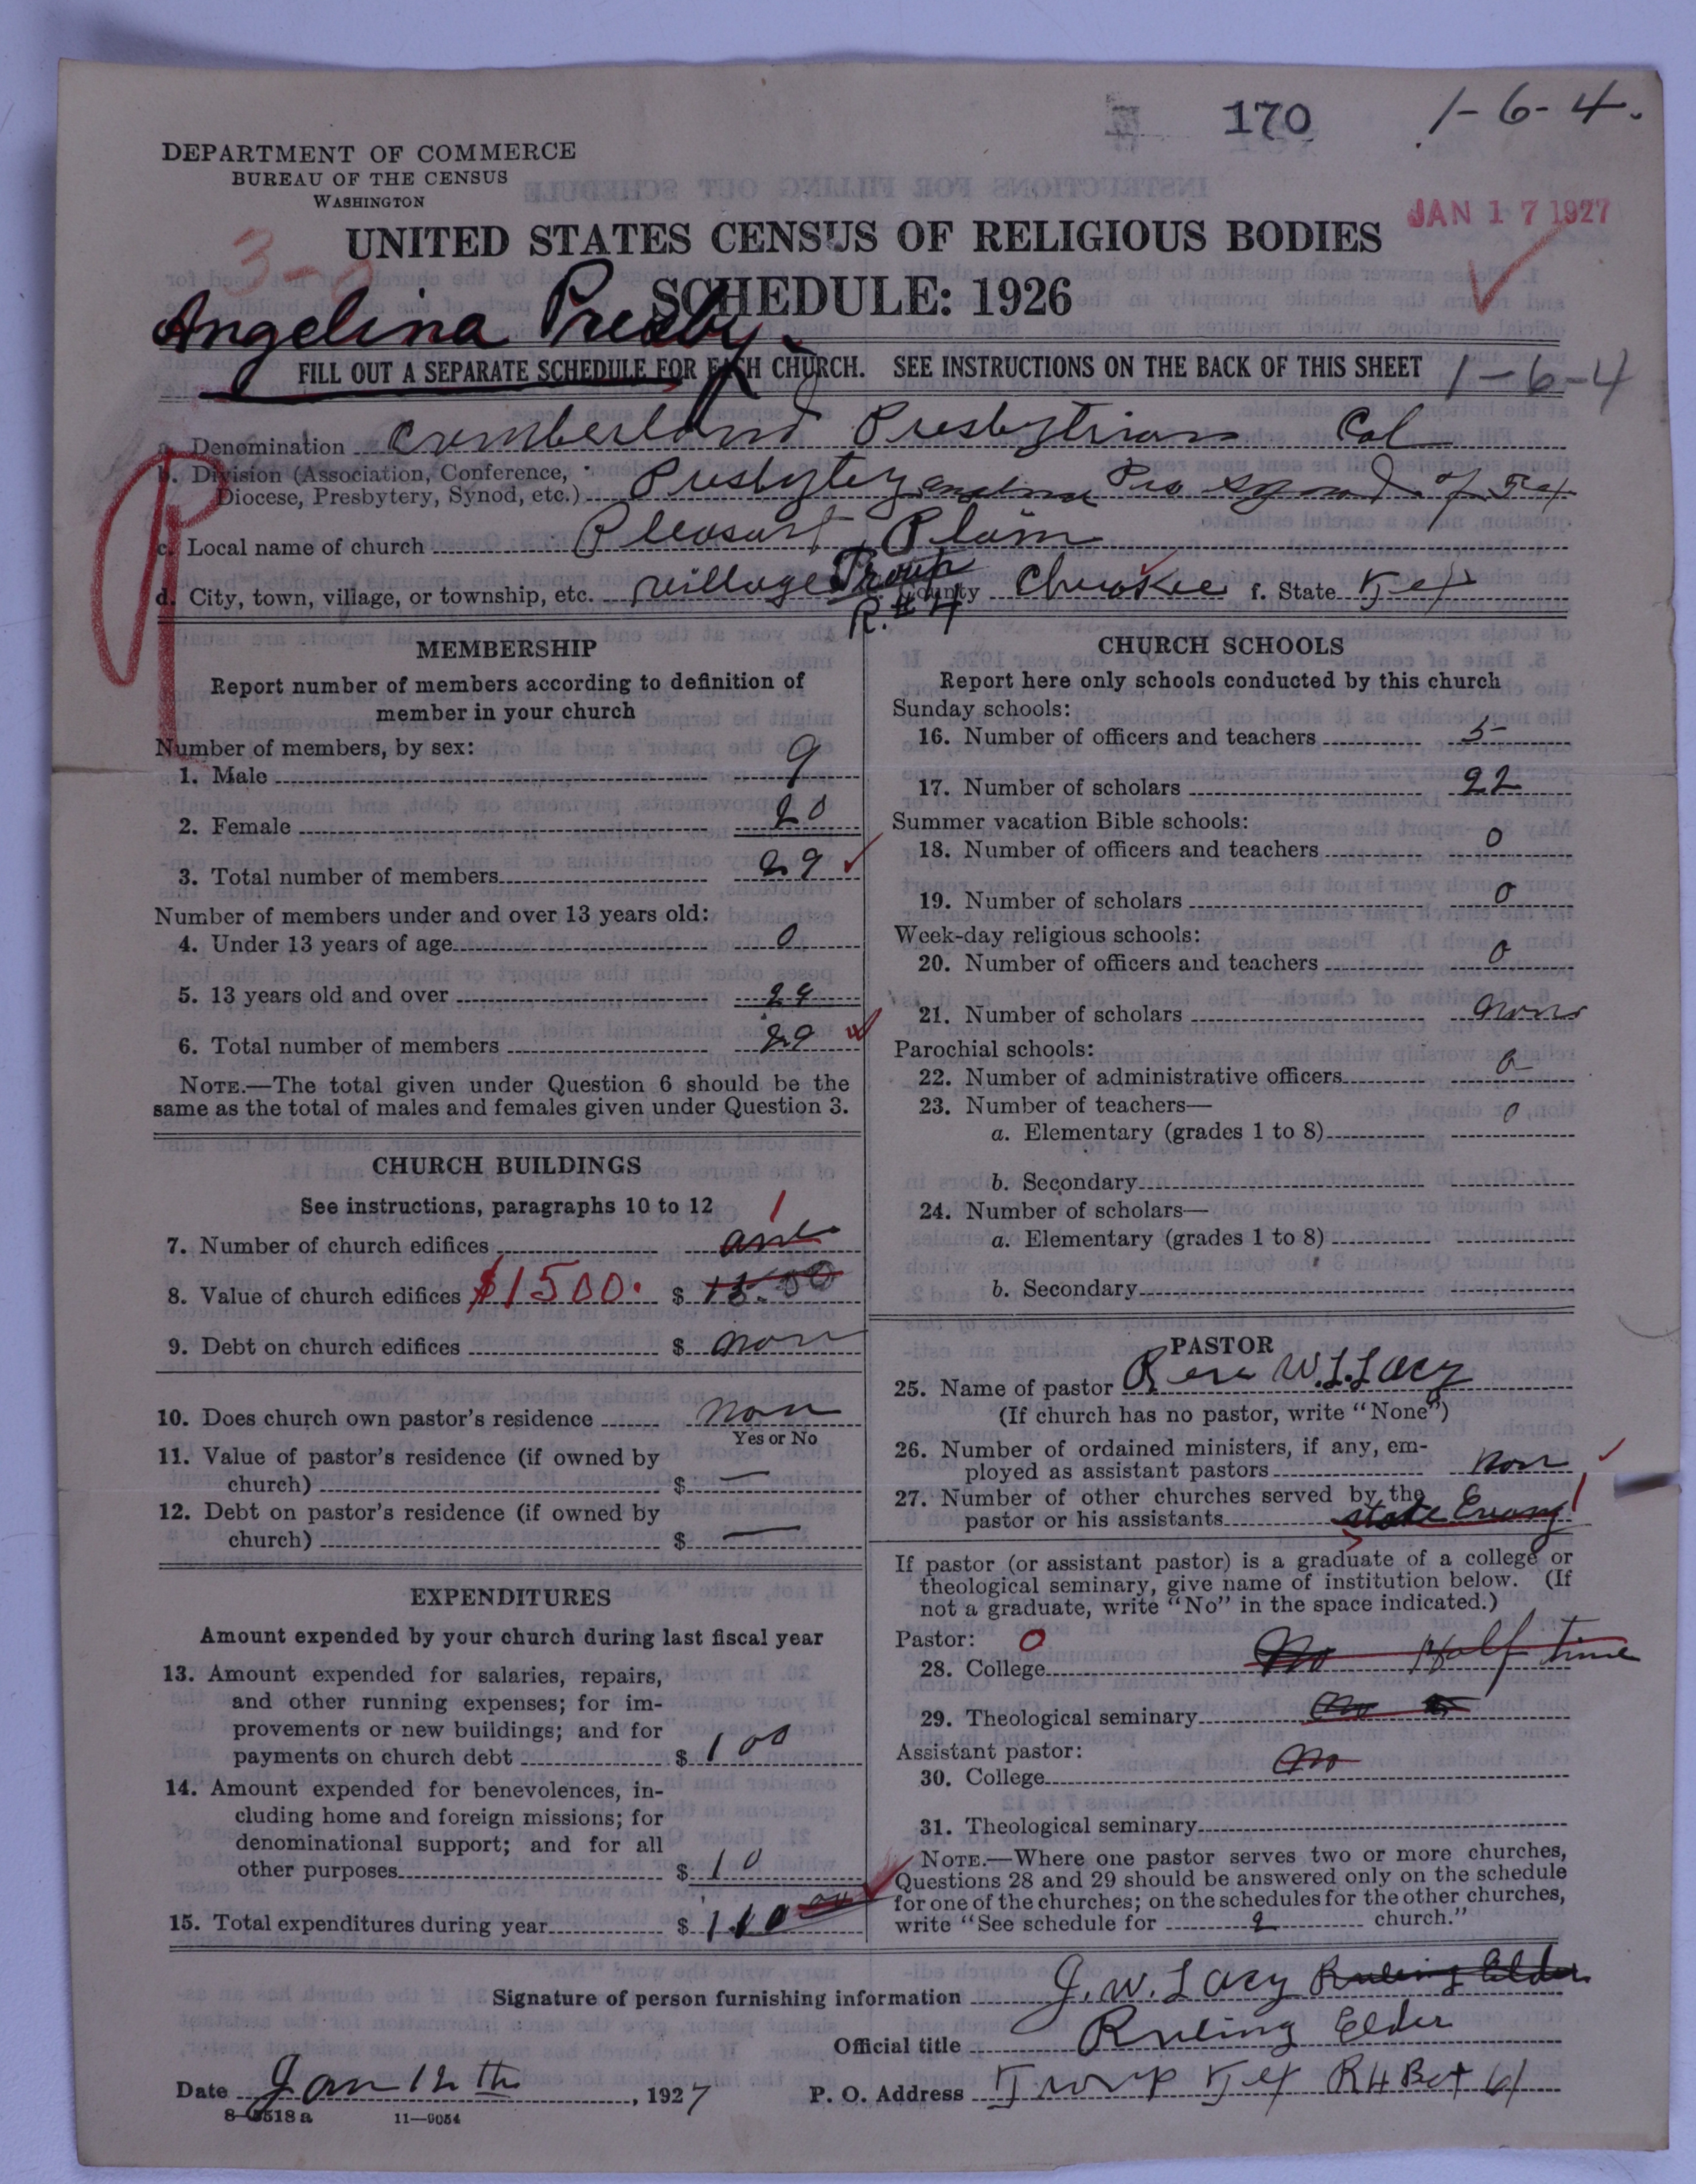 170 1-6-4.
DEPARTMENT OF COMMERCE
BUREAU OF THE CENSUS
WASHINGTON
JAN 17 1927
UNITED STATES CENSUS OF RELIGIOUS BODIES
SCHEDULE: 1926
Angelina Presby.
FILL OUT A SEPARATE SCHEDULE FOR EACH CHURCH. SEE INSTRUCTIONS ON THE BACK OF THIS SHEET 1-6-4
a. Denomination Cumberland Presbytrian Col
b. Division (Association, Conference,
Diocese, Presbytery, Synod, etc.) Presbytey Synod of Tex
c. Local name of church Pleasart Plain
d. City, town, village, or township, etc. village Troup County Cherokee f. State Tex
R. #4
MEMBERSHIP
Report number of members according to definition of
member in your church
Number of members, by sex:
1. Male 9
2. Female 20
3. Total number of members 29
Number of members under and over 13 years old:
4. Under 13 years of age 0
5. 13 years old and over 29
6. Total number of members 29
NOTE.—The total given under Question 6 should be the
same as the total of males and females given under Question 3.
CHURCH BUILDINGS
See instructions, paragraphs 10 to 12
1
7. Number of church edifices one
8. Value of church edifices $1500. $ 15.00
9. Debt on church edifices $ non
10. Does church own pastor's residence non
Yes or No
11. Value of pastor's residence (if owned by
church) $ —
12. Debt on pastor's residence (if owned by
church) $ —
EXPENDITURES
Amount expended by your church during last fiscal year
13. Amount expended for salaries, repairs,
and other running expenses; for im-
provements or new buildings; and for
payments on church debt $ 100
14. Amount expended for benevolences, in-
cluding home and foreign missions; for
denominational support; and for all
other purposes $ 10
15. Total expenditures during year $ 110 00
CHURCH SCHOOLS
Report here only schools conducted by this church
Sunday schools:
16. Number of officers and teachers 5
17. Number of scholars 22
Summer vacation Bible schools:
18. Number of officers and teachers 0
19. Number of scholars 0
Week-day religious schools:
20. Number of officers and teachers 0
21. Number of scholars none
Parochial schools:
22. Number of administrative officers 0
23. Number of teachers—
a. Elementary (grades 1 to 8) 0
b. Secondary
24. Number of scholars—
a. Elementary (grades 1 to 8)
b. Secondary
PASTOR
25. Name of pastor W. L. Lacy
(If church has no pastor, write "None")
26. Number of ordained ministers, if any, em-
ployed as assistant pastors non
27. Number of other churches served by the
pastor or his assistants state Evang 1
If pastor (or assistant pastor) is a graduate of a college or
theological seminary, give name of institution below. (If
not a graduate, write "No" in the space indicated.)
Pastor: 0
28. College No Half time
29. Theological seminary No
Assistant pastor:
30. College No
31. Theological seminary
NOTE.—Where one pastor serves two or more churches,
Questions 28 and 29 should be answered only on the schedule
for one of the churches; on the schedules for the other churches,
write "See schedule for 2 church."
Signature of person furnishing information J. W. Lacy Ruling Elder
Official title Ruling Elder
Date Jan 12th, 1927 P. O. Address Troup Tex R4 Box 61
8-5518a 11—9054